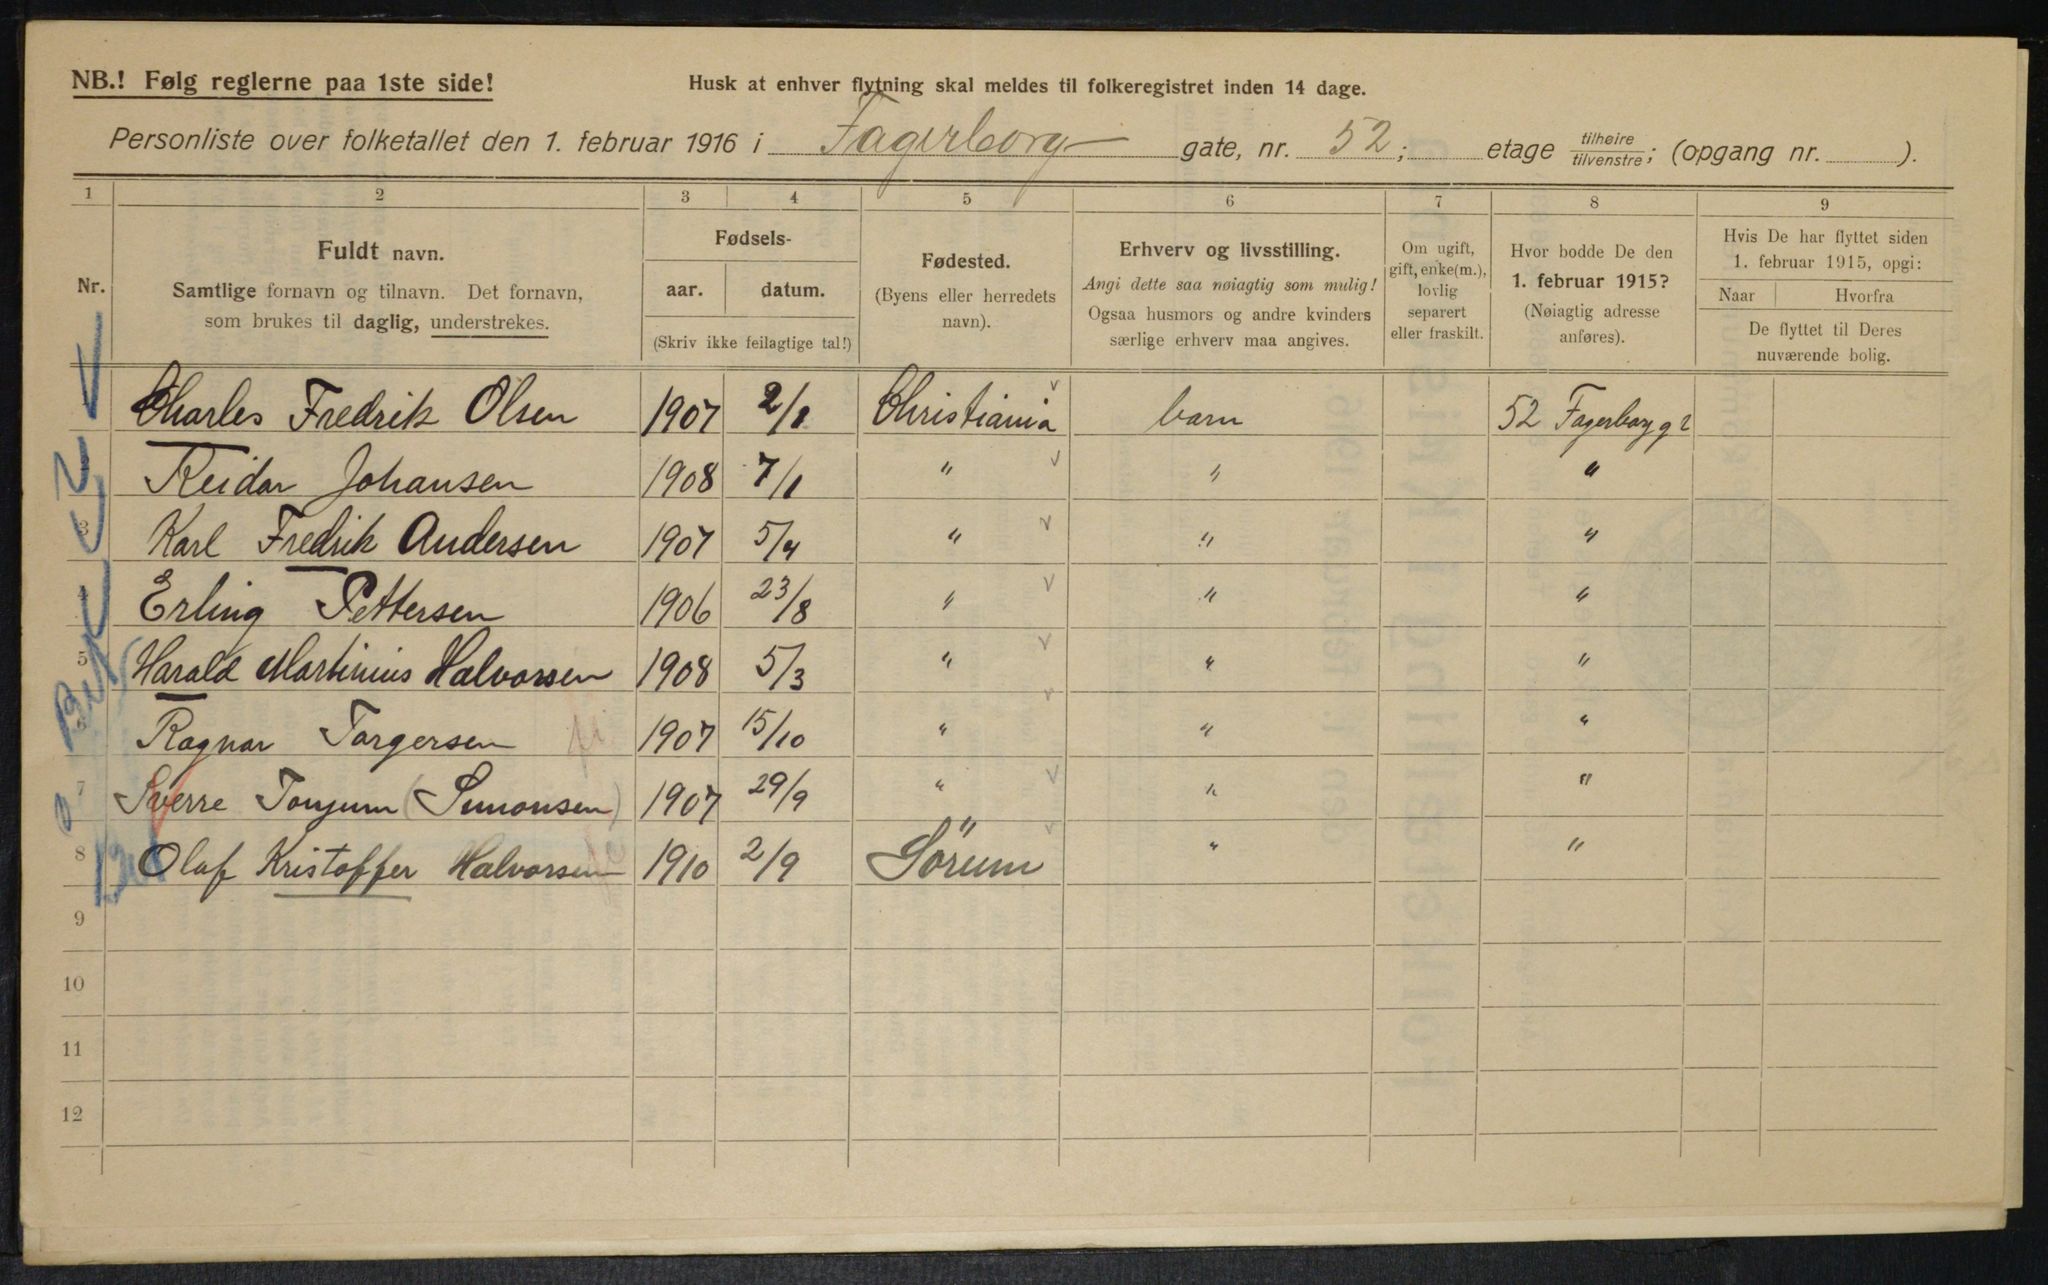 NB.! Følg reglerne paa 1ste side!
Husk at enhver flytning skal meldes til folkeregistret inden 14 dage.
Personliste over folketallet den 1. februar 1916 i Fagerborg gate, nr. 52; etage tilhøire tilvenstre; (opgang nr. ).
1 2 3 4 5 6 7 8 9
Nr.
Fuldt navn.
Samtlige fornavn og tilnavn. Det fornavn,
som brukes til daglig, understrekes.
Fødsels-
aar. datum.
(Skriv ikke feilagtige tal!)
Fødested.
(Byens eller herredets
navn).
Erhverv og livsstilling.
Angi dette saa nøiagtig som mulig!
Ogsaa husmors og andre kvinders
særlige erhverv maa angives.
Om ugift,
gift, enke(m.),
lovlig
separert
eller fraskilt.
Hvor bodde De den
1. februar 1915?
(Nøiagtig adresse
anføres).
Hvis De har flyttet siden
1. februar 1915, opgi:
Naar Hvorfra
De flyttet til Deres
nuværende bolig.
Charles Fredrik Olsen 1907 2/1 Christiania barn 52 Fagerborg g
Reidar Johansen 1908 7/1 " " "
3 Karl Fredrik Andersen 1907 5/4 " " "
4 Erling Pettersen 1906 23/8 " " "
5 Harald Martinius Halvorsen 1908 5/3 " " "
6 Ragnar Torgersen 1907 15/10 " " "
7 Sverre (Simonsen) 1907 29/9 " " "
8 Olaf Kristoffer Halvorsen 1910 2/9 Sörum " "
9
10
11
12